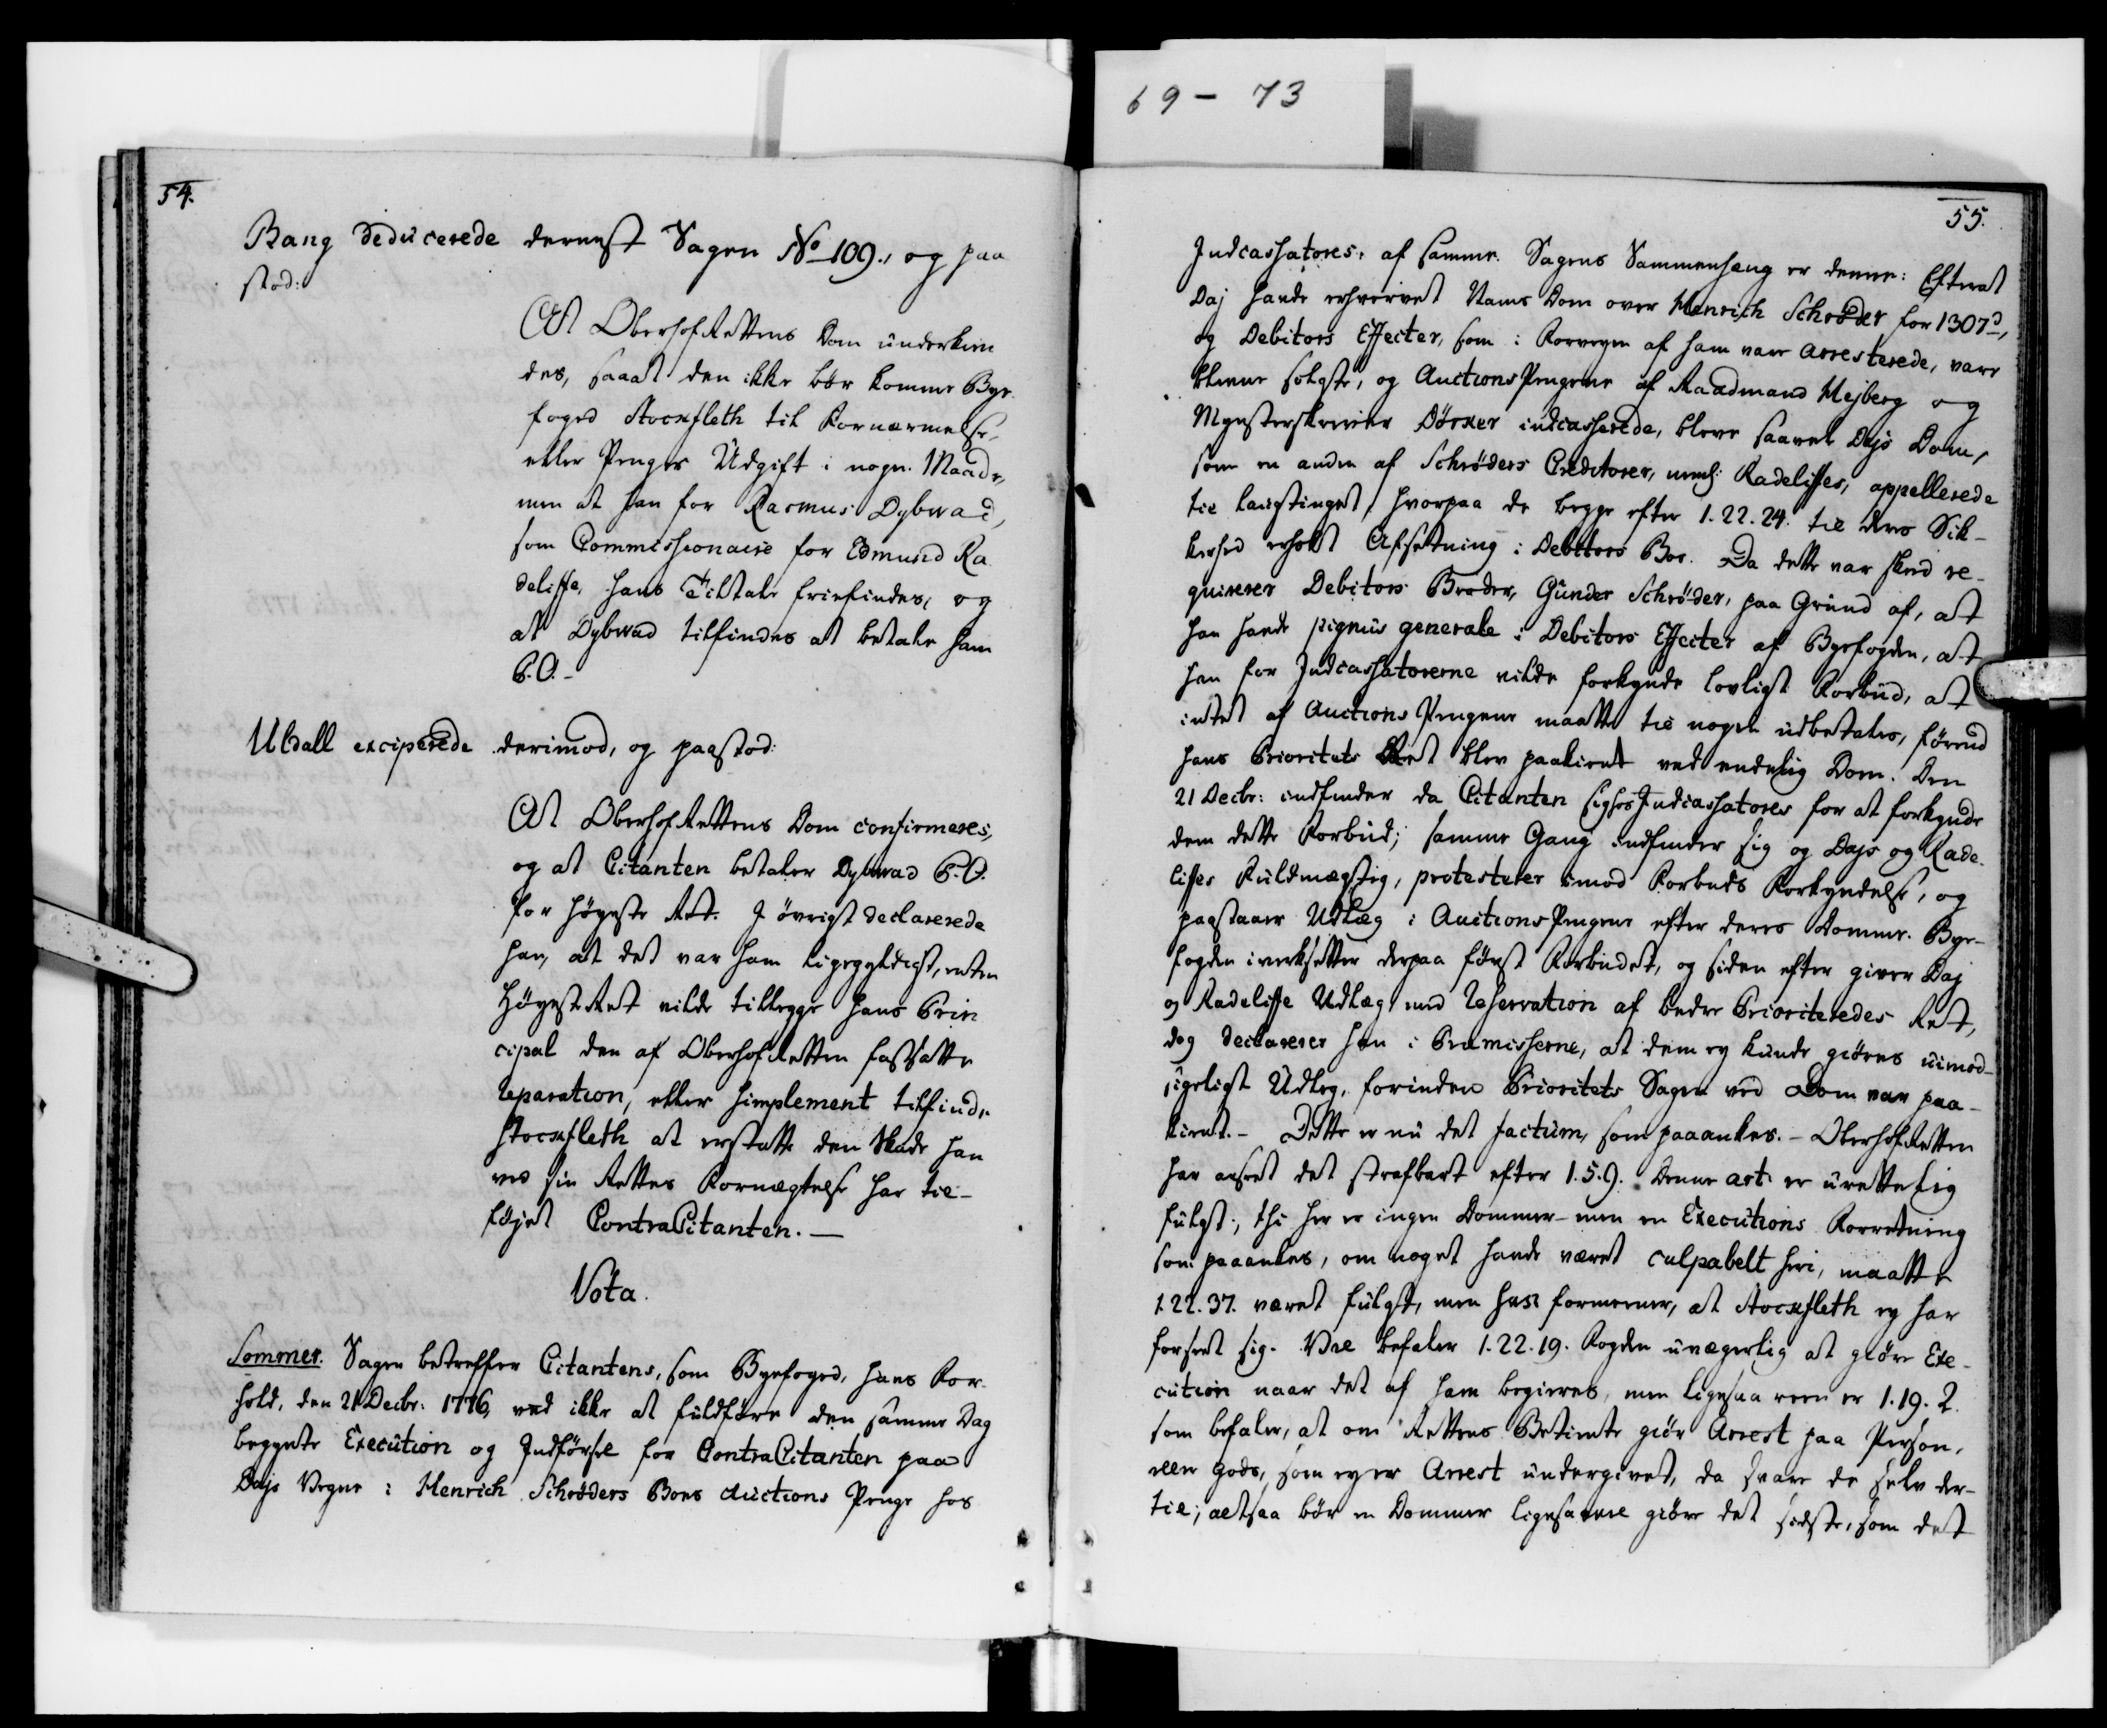 69 - 73
54.
Bang deducerede dernest Sagen No 109., og paa
stod:
At OberhofRettens Dom underkien
des, saa at den ikke bør komme Bye
foged Stockfleth til Fornærmelse,
eller Penges Udgift i nogen Maade,
men at han for Rasmus Dybwad,
som Commissionaire for Edmund Ra
deliffe, hans Tiltale friefindes, og
at Dybwad tilfindes at betale ham
P.O. -
Uldall exciperede derimod, og paastod:
At OberhofRettens Dom confirmeres,
og at Citanten betaler Dybwad P.O.
for høyeste Ret. I øvrigt declarerede
han, at det var ham ligegyldigt, enten
HøyesteRet vilde tillegge hans Prin
cipal den af OberhofRetten fastsatte
reparation, eller simplement tilfinde
Stockfleth at erstatte den Skade han
ved sin Rettes Fornægtelse har til-
føjet ContraCitanten. -
Vota.
Sommer. Sagen betreffer Citantens, som Byefoged, hans For-
hold, den 21 Decbr: 1776, ved ikke at fuldføre den samme Dag
begyndte Execution og Indførsel for ContraCitanten paa
Dajs Vegne i Henrich Schrøders Boes Auctions Penge hos
55.
Indcassatores, af samme. Sagens Sammenhæng er denne: Efterat
Daj havde erhvervet Nams Dom over Henrich Schrøder for 1307 d,
og Debitors Effecter, som i Forvejen af ham vare arresterede, vare
blevne solgte, og AuctionsPengene af Raadmand Mejberg og
Mynsterskriver Dörker indcasserede, bleve saavel Dajs Dom,
som en anden af Schrøders Creditorer, neml: Radeliffes, appellerede
til laugtinget, hvorpaa de begge efter 1.22.24. til deres Sik-
kerhed erholdt Afsetning i Debitors Boe. Da dette var skeed re-
quirerer Debitors Broder, Gunder Schrøder, paa Grund af, at
han havde pignus generale i Debitors Effecter af Byefogden, at
han for Indcassatorerne vilde forkynde lovligt Forbud, at
intet af Auctions Pengene maatte til nogen udbetales, førend
hans Prioritets Ret blev paakient ved endelig Dom. Den
21 Decbr: indfinder da Citanten sig hos Indcassatores for at forkynde
dem dette Forbud; samme Gang indfinder sig og Dajs og Rade-
liffes Fuldmægtig, protesterer imod Forbuds Forkyndelse, og
paastaaer Udlæg i AuctionsPengene efter deres Domme. Bye-
fogden iverksætter derpaa først Forbudet, og siden efter giver Daj
og Radeliffe Udlæg med Reservation af bedre Prioriteredes Ret,
dog declarerer han i Præmisserne, at dem ey kunde giøres uimod-
sigeligt Udleg, forinden Prioritets Sagen ved Dom var paa-
kient. - Dette er nu det factum, som paaankes. - OberhofRetten
har anseet det strafbart efter 1.5.9. Denne art: er urettelig
fulgt, thi her er ingen Dommer- men en Executions Forretning
som paaankes, om noget havde været culpabelt heri, maatte
1.22.37. været fulgt, men jeg formener, at Stockfleth ey har
forseet sig. Vel befaler 1.22.19. Fogden uvægerlig at giøre Exe-
cution naar det af ham begieres, men ligesaa reen er 1.19.2.
som befaler, at om Rettens Betiente giør Arrest paa Person,
eller gods, som ey er Arrest undergivet, da svare de selv der-
til; altsaa bør en Dommer ligesaavel giøre det sidste, som det